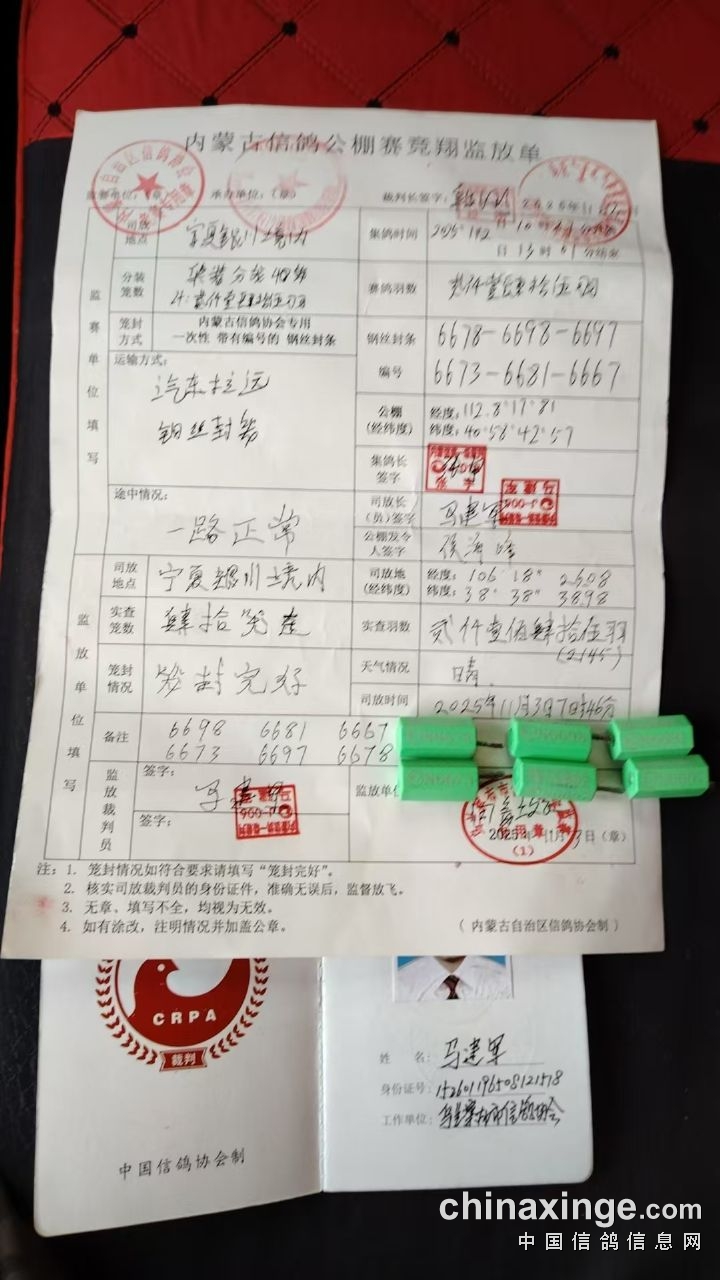 内蒙古信鸽公棚赛竞翔监放单
监赛单位:(章) 承办单位:(章) 裁判长签字:
监赛单位填写
司放地点 宁夏银川境内 集鸽时间
日13时01分结束
分装笼数 赛鸽羽数
笼封方式 内蒙古信鸽协会专用 一次性 带有编号的 钢丝封条
钢丝封条编号 6678-6698-6697
6673-6681-6667
运输方式: 汽车拉运
公棚(经纬度) 经度:112.8°17"81
纬度:40°58"42"57
集鸽长签字
途中情况: 一路正常
司放长(员)签字 马建军
公棚发令人签字
监放单位填写
司放地点 宁夏银川境内 司放地(经纬度) 经度: 106°18" 2608
纬度: 38° 38" 3898
实查笼数 肆拾笼 实查羽数 贰仟壹佰肆拾伍羽
(2145)
笼封情况 笼封完好 天气情况 晴
司放时间 2025年11月3日7时46分
备注 6698 6681 6667
6673 6697 6678
监放裁判员 签字: 马建军
签字:
监放单位
2025年11月3日(章)
(1)
注:1. 笼封情况如符合要求请填写“笼封完好”。
2. 核实司放裁判员的身份证件,准确无误后,监督放飞。
3. 无章、填写不全,均视为无效。
4. 如有涂改,注明情况并加盖公章。
(内蒙古自治区信鸽协会制)
CRPA
裁判
中国信鸽协会制
姓 名: 马建军
身份证号: 152601196508121578
工作单位: 乌兰察布市信鸽协会
chinaxinge.com
中国信鸽信息网